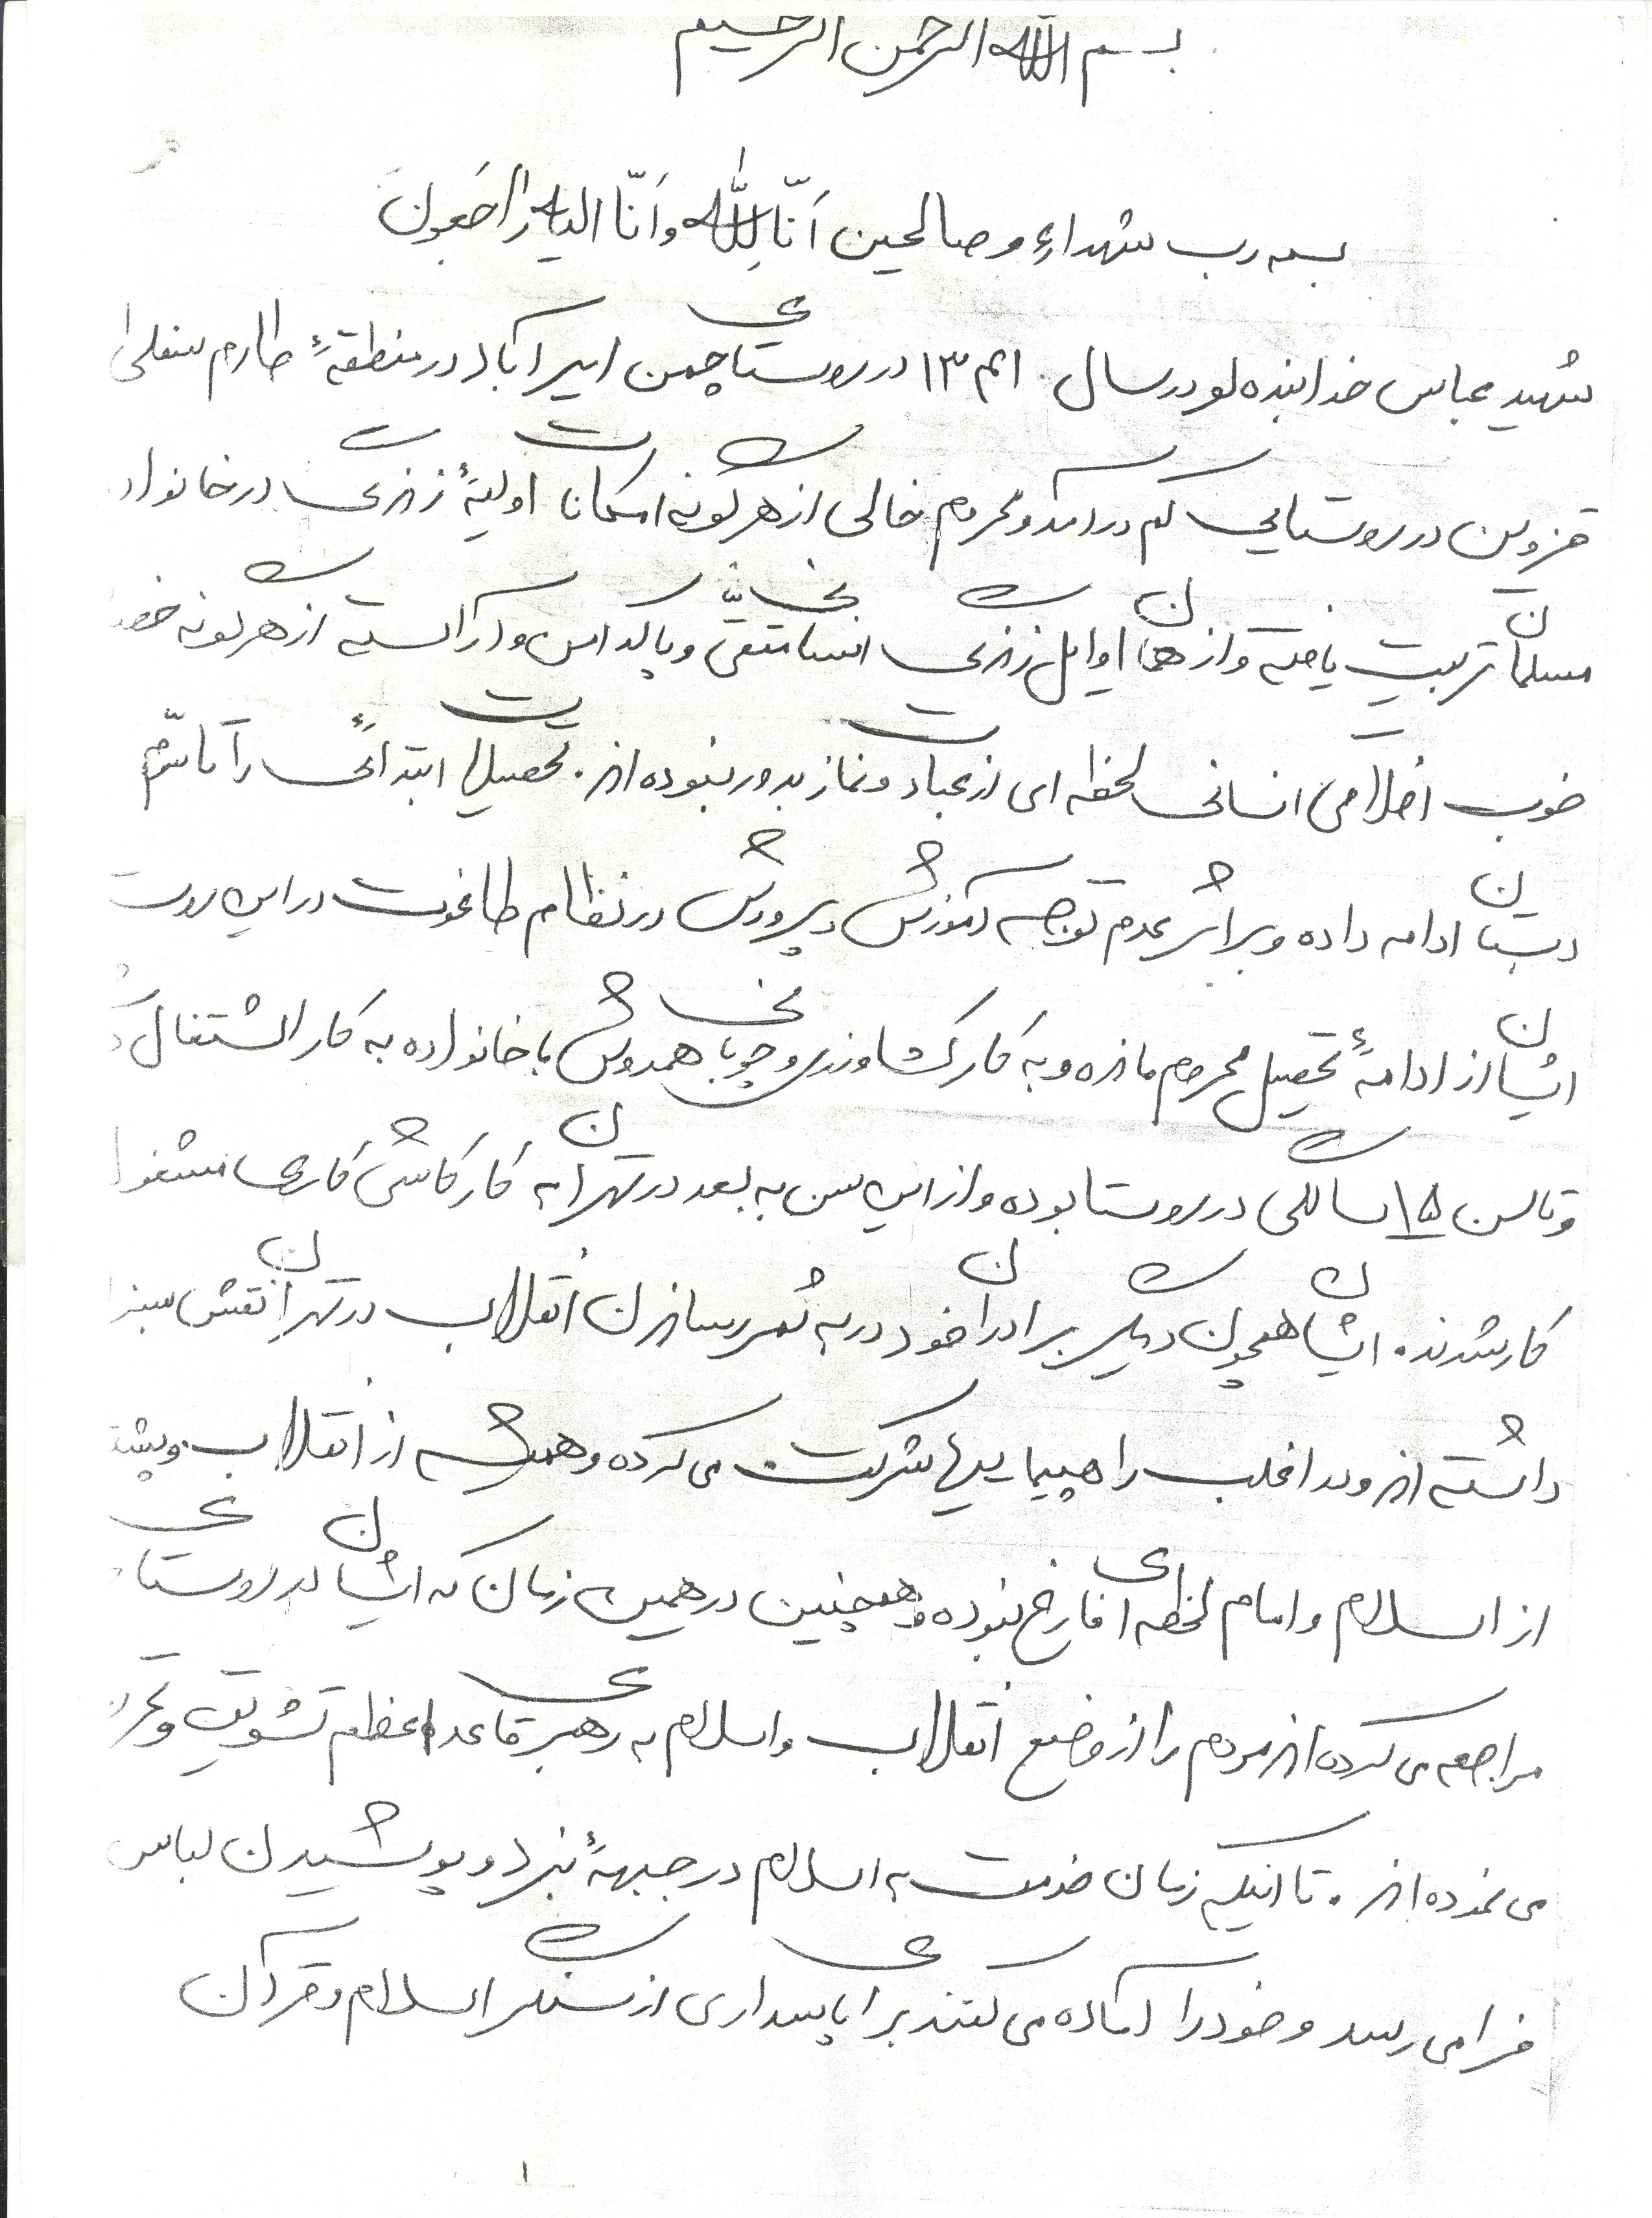 بسم الله الرحمن الرحیم
بسمه رب شهداءِ و صالحین اَنّا لِلّٰه وَاَنّا الیه راجَعونَ
شهید عباس خدابنده لو در سال ۱۳۴۱ در روستای چمن امیرآباد در منطقهٔ طارم سفلیٰ
قزوین در روستایی کم درآمد و محروم خالی از هرگونه امکانات اولیهٔ زندگی در خانواد
مسلمان تربیت یافته و از همان اوایل زندگی انسانی متقّی و پاکدامن و آراسته از هرگونه
خوب اخلاقی انسانی لحظه ای از عبادت و نماز بدور نبوده اند. تحصیلات ابتدائی را تا ششم
دبستان ادامه داده و بر اثر عدم توجه آموزش و پرورش در نظام طاغوت در این روست
ایشان از ادامهٔ تحصیل محروم مانده و به کار کشاورزی و چوپانی همدوش با خانواده به کار اشتغال
و تا سن ۱۵ سالگی در روستا بوده و از این سن به بعد در تهران به کار کاشی کاری مشغو
کار شدند. ایشان همچون دیگر برادران خود در به ثمر رساندن انقلاب در تهران نقش
داشته اند و در اغلب راهپیماییها شرکت می کرده و همیشه از انقلاب و
از اسلام و امام لحظه ای فارغ نبوده و همچنین در همین زمان که ایشان در روستای
مراجعه می کرده اند مردم را از وضع انقلاب و اسلام به رهبری قاعد اعظم تشویق و
می نموده اند. تا اینکه زمان خدمت به اسلام در جبههٔ نبرد و پوشیدن لباس
فرا می رسد و خود را آماده می کنند برای پاسداری از سنگر اسلام و قرآن
۱